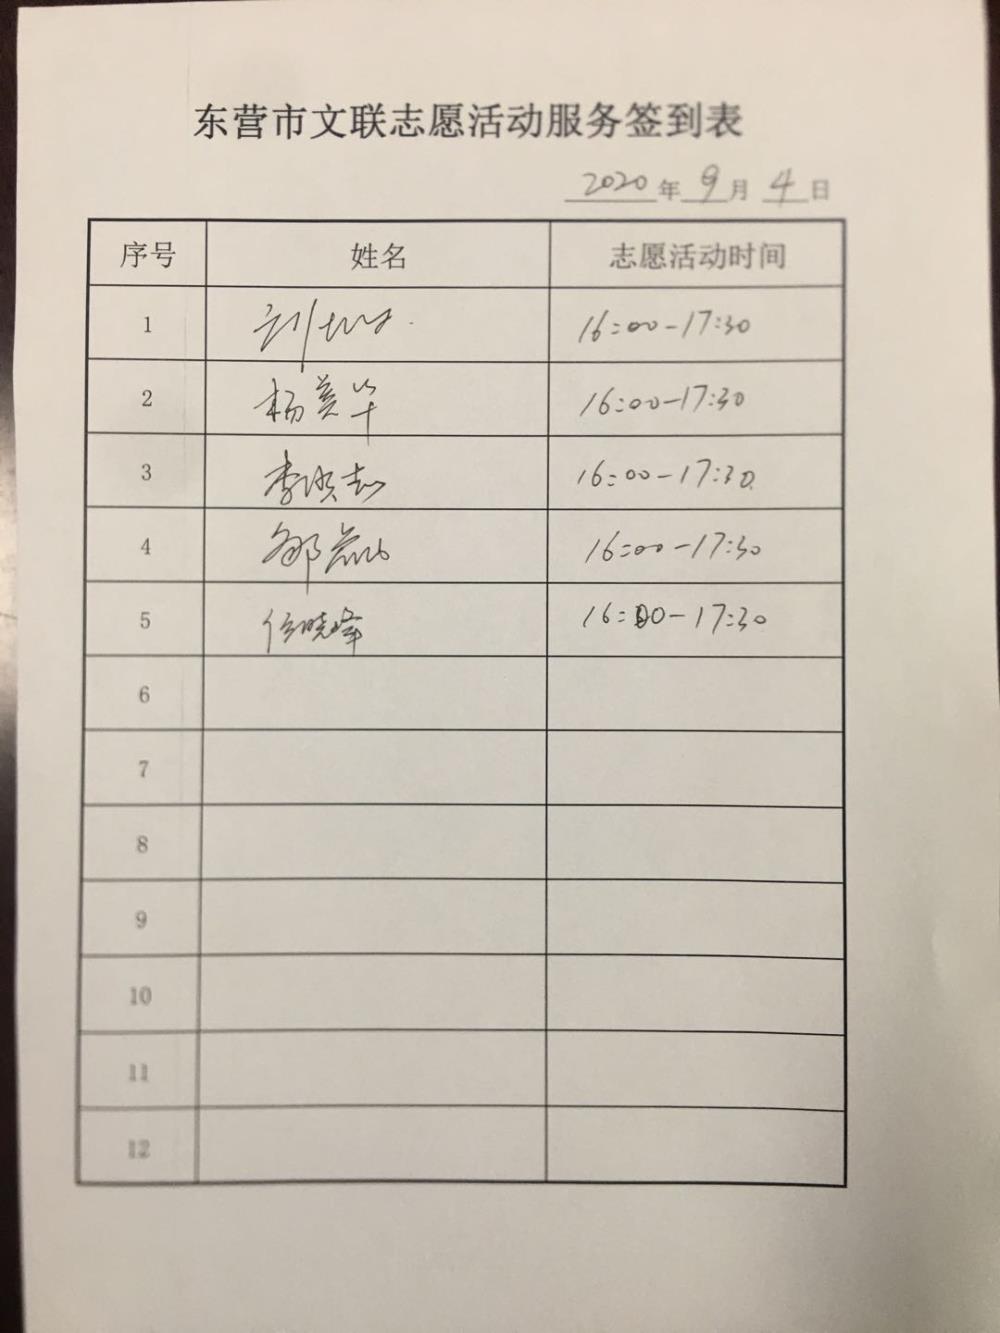 东营市文联志愿活动服务签到表
2020年9月4日
序号 姓名 志愿活动时间
1 刘 16:00-17:30
2 杨美华 16:00-17:30
3 李洪志 16:00-17:30
4 邹 16:00-17:30
5 任晓峰 16:00-17:30
6
7
8
9
10
11
12